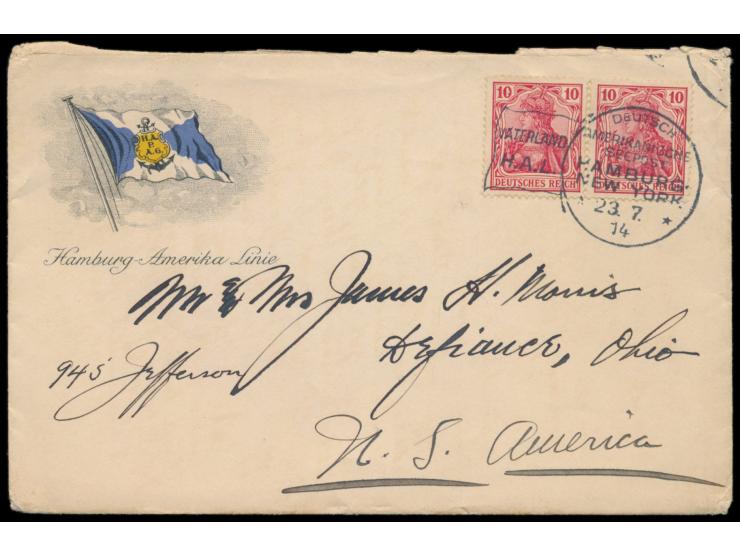 H.A.
P.
A.G.
Hamburg-Amerika Linie
10 10
10 10
VATERLAND
H.A.L.
DEUTSCHES REICH
DEUTSCH
AMERIKANISCHE
SEEPOST
HAMBURG.
NEW YORK.
23. 7.
14
Mr & Mrs James H. Morris
945 Jefferson
Defiance, Ohio
U. S. America